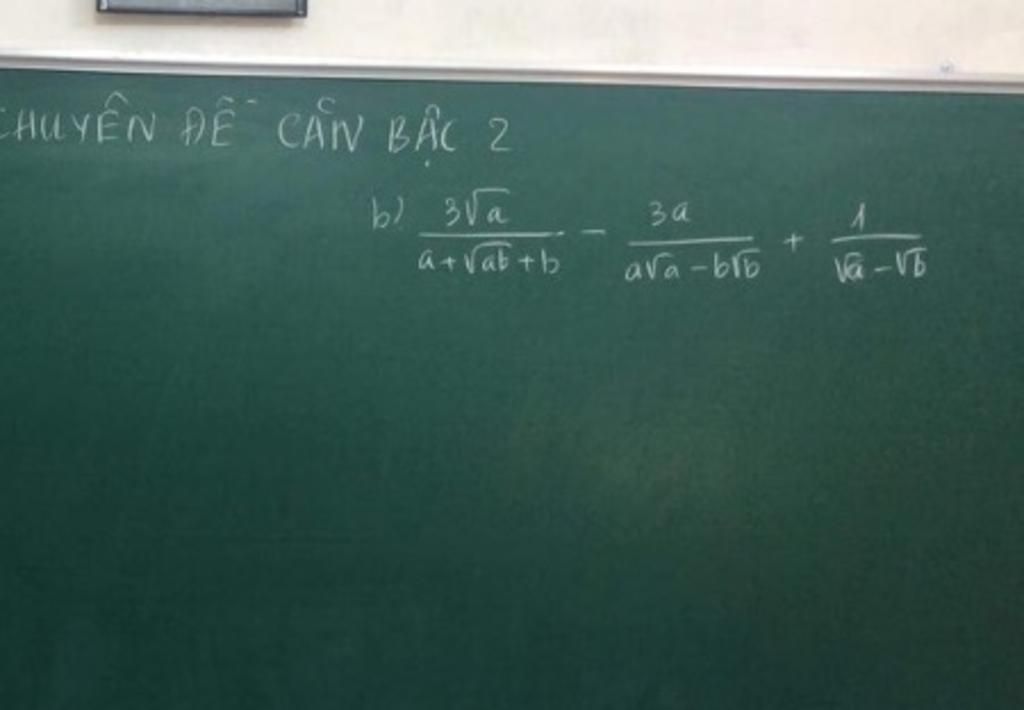 CHUYÊN ĐỀ CĂN BẬC 2
b) 3√a / (a + √ab + b) − 3a / (a√a − b√b) + 1 / (√a − √b)